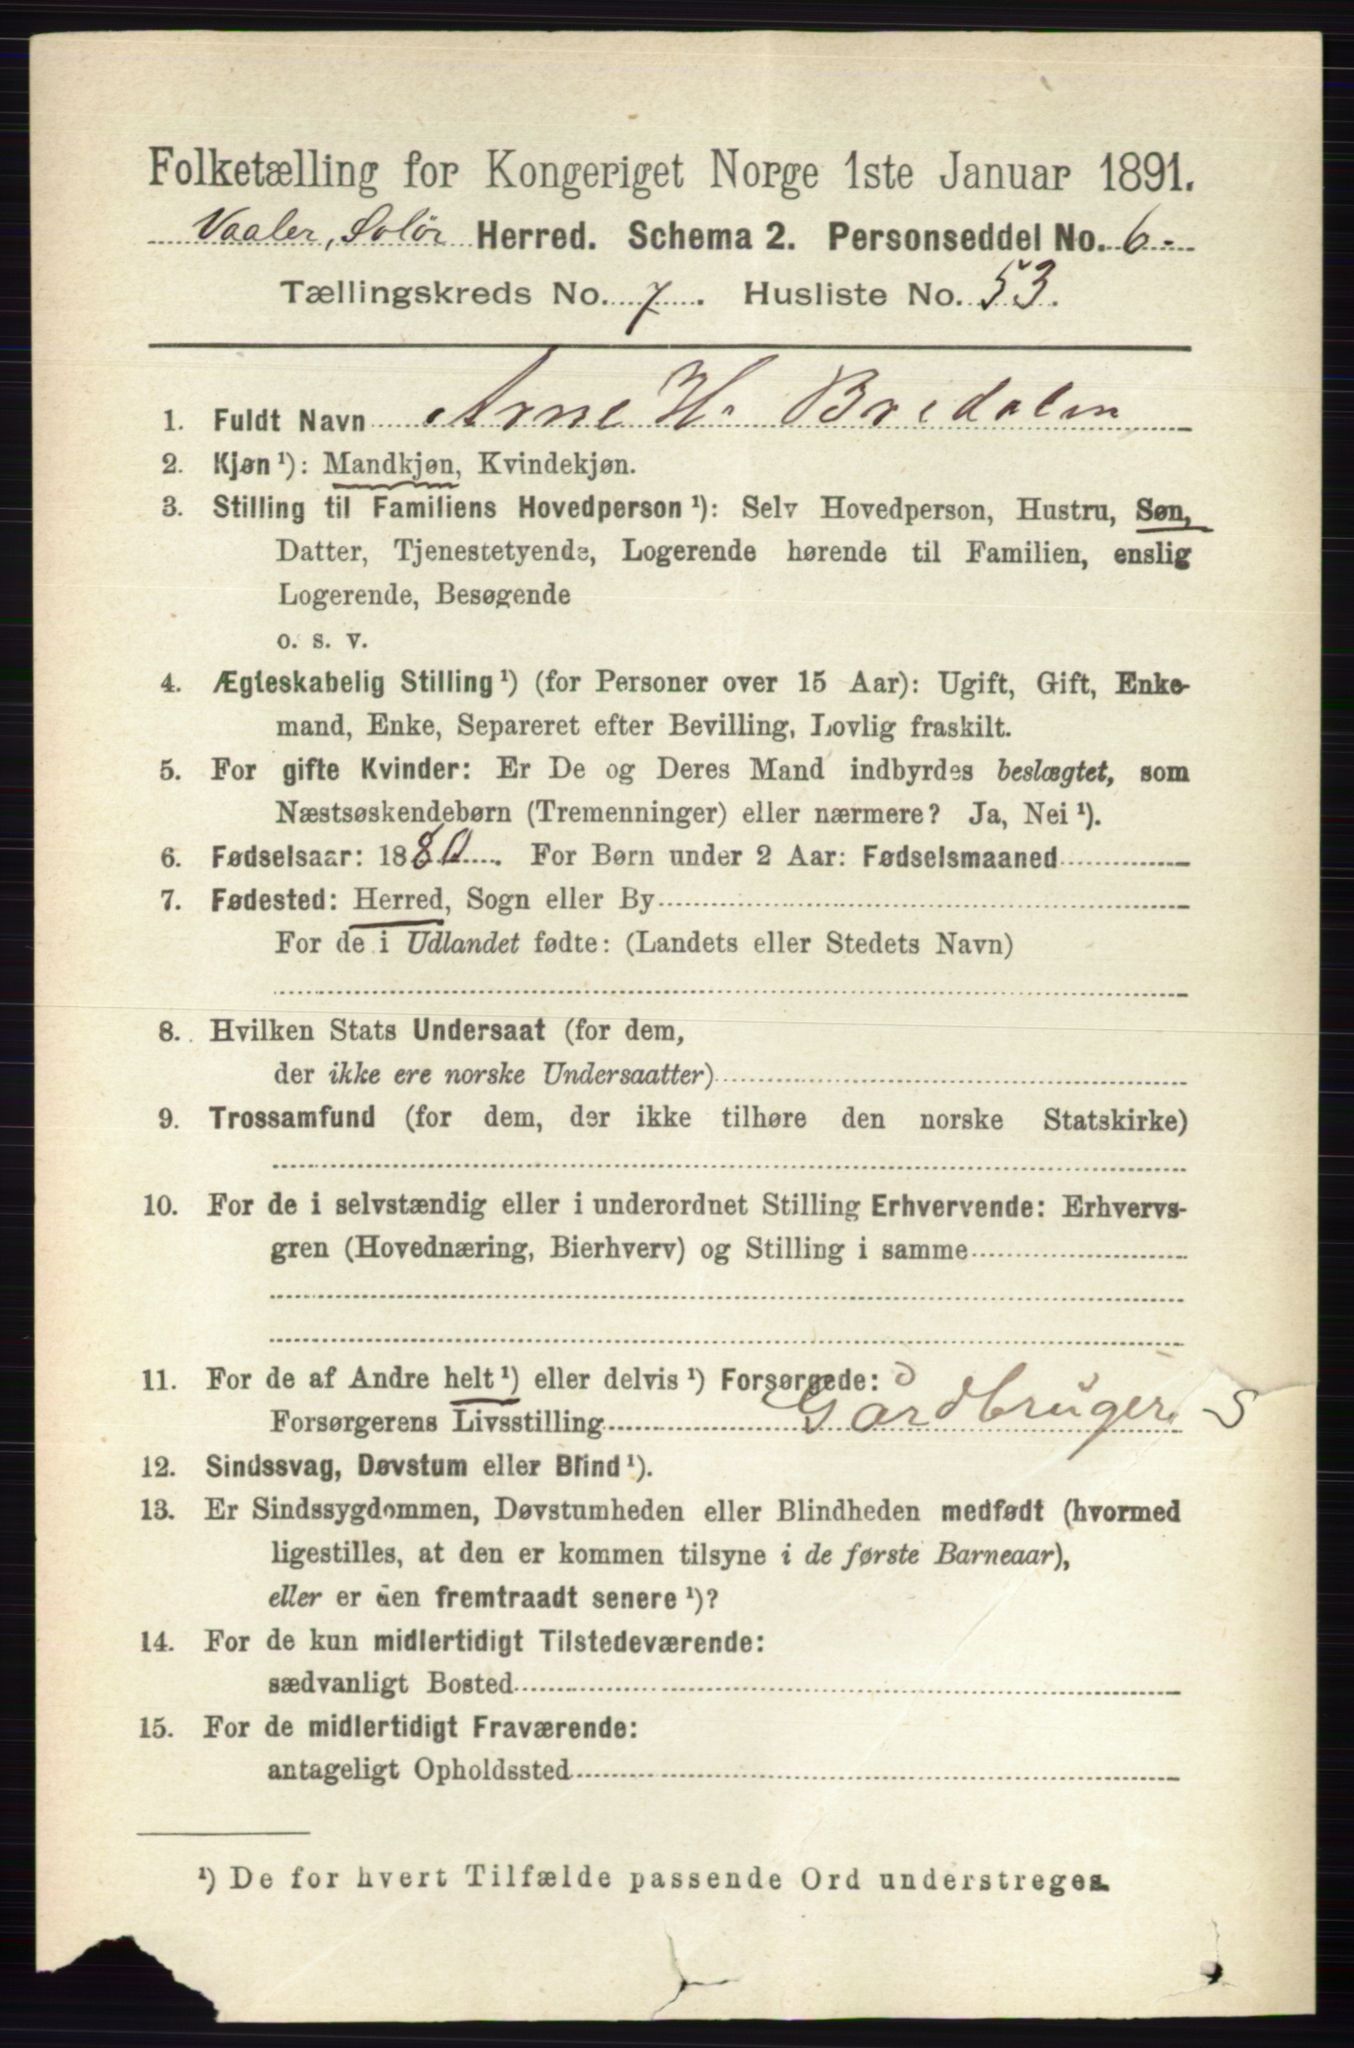 Folketælling for Kongeriget Norge 1ste Januar 1891.
Vaaler, Solör Herred. Schema 2. Personseddel No. 6.
Tællingskreds No. 7. Husliste No. 53.
1. Fuldt Navn Arne H. Bredalen
2. Kjøn ¹): Mandkjøn, Kvindekjøn.
3. Stilling til Familiens Hovedperson ¹): Selv Hovedperson, Hustru, Søn,
Datter, Tjenestetyende, Logerende hørende til Familien, enslig
Logerende, Besøgende
o. s. v.
4. Ægteskabelig Stilling ¹) (for Personer over 15 Aar): Ugift, Gift, Enke-
mand, Enke, Separeret efter Bevilling, Lovlig fraskilt.
5. For gifte Kvinder: Er De og Deres Mand indbyrdes beslægtet, som
Næstsøskendebørn (Tremenninger) eller nærmere? Ja, Nei ¹).
6. Fødselsaar: 1880. For Børn under 2 Aar: Fødselsmaaned
7. Fødested: Herred, Sogn eller By
For de i Udlandet fødte: (Landets eller Stedets Navn)
8. Hvilken Stats Undersaat (for dem,
der ikke ere norske Undersaatter)
9. Trossamfund (for dem, der ikke tilhøre den norske Statskirke)
10. For de i selvstændig eller i underordnet Stilling Erhvervende: Erhvervs-
gren (Hovednæring, Bierhverv) og Stilling i samme
11. For de af Andre helt ¹) eller delvis ¹) Forsørgede:
Forsørgerens Livsstilling Gårdbruger S
12. Sindssvag, Døvstum eller Blind ¹).
13. Er Sindssygdommen, Døvstumheden eller Blindheden medfødt (hvormed
ligestilles, at den er kommen tilsyne i de første Barneaar),
eller er den fremtraadt senere ¹)?
14. For de kun midlertidigt Tilstedeværende:
sædvanligt Bosted
15. For de midlertidigt Fraværende:
antageligt Opholdssted
¹) De for hvert Tilfælde passende Ord understreges.